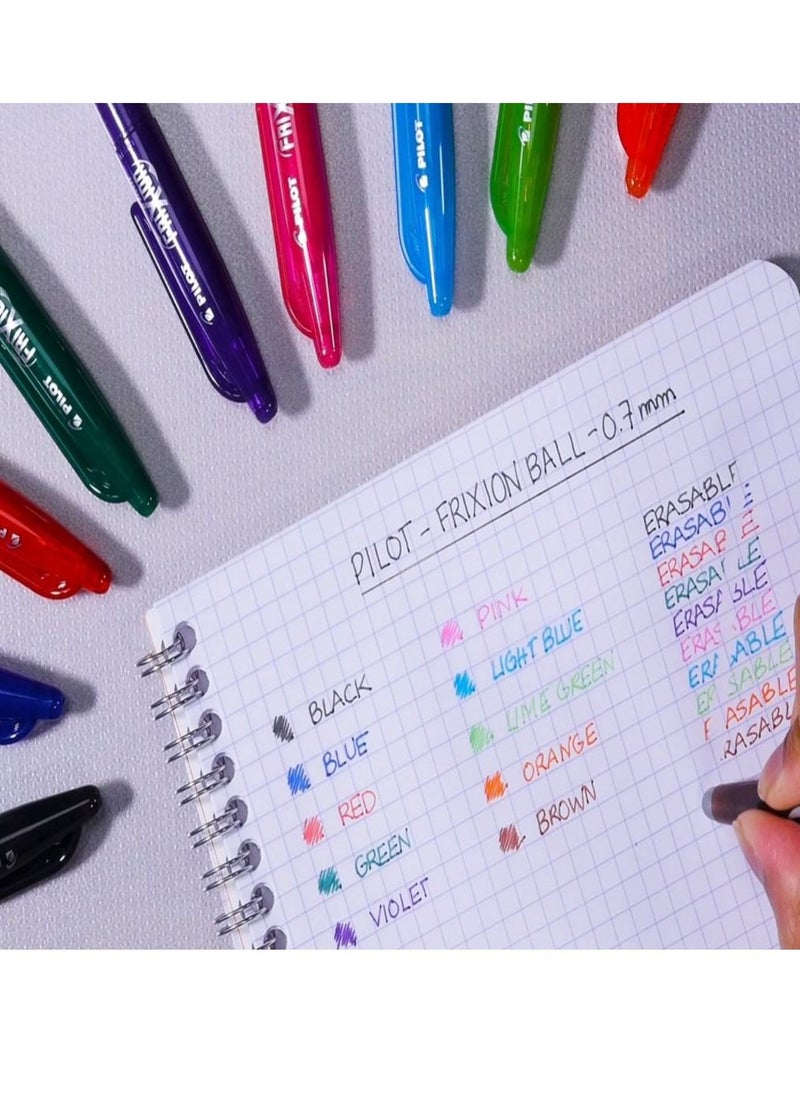 FRIXION
PILOT
FRIX
PILOT
PILOT
PI
FRIXIO
PILOT
PILOT - FRIXION BALL - 0.7mm
BLACK
BLUE
RED
GREEN
VIOLET
PINK
LIGHT BLUE
LIME GREEN
ORANGE
BROWN
ERASABLE
ERASABLE
ERASABLE
ERASABLE
ERASABLE
ERASABLE
ERASABLE
ERASABLE
ERASABLE
ERASABL